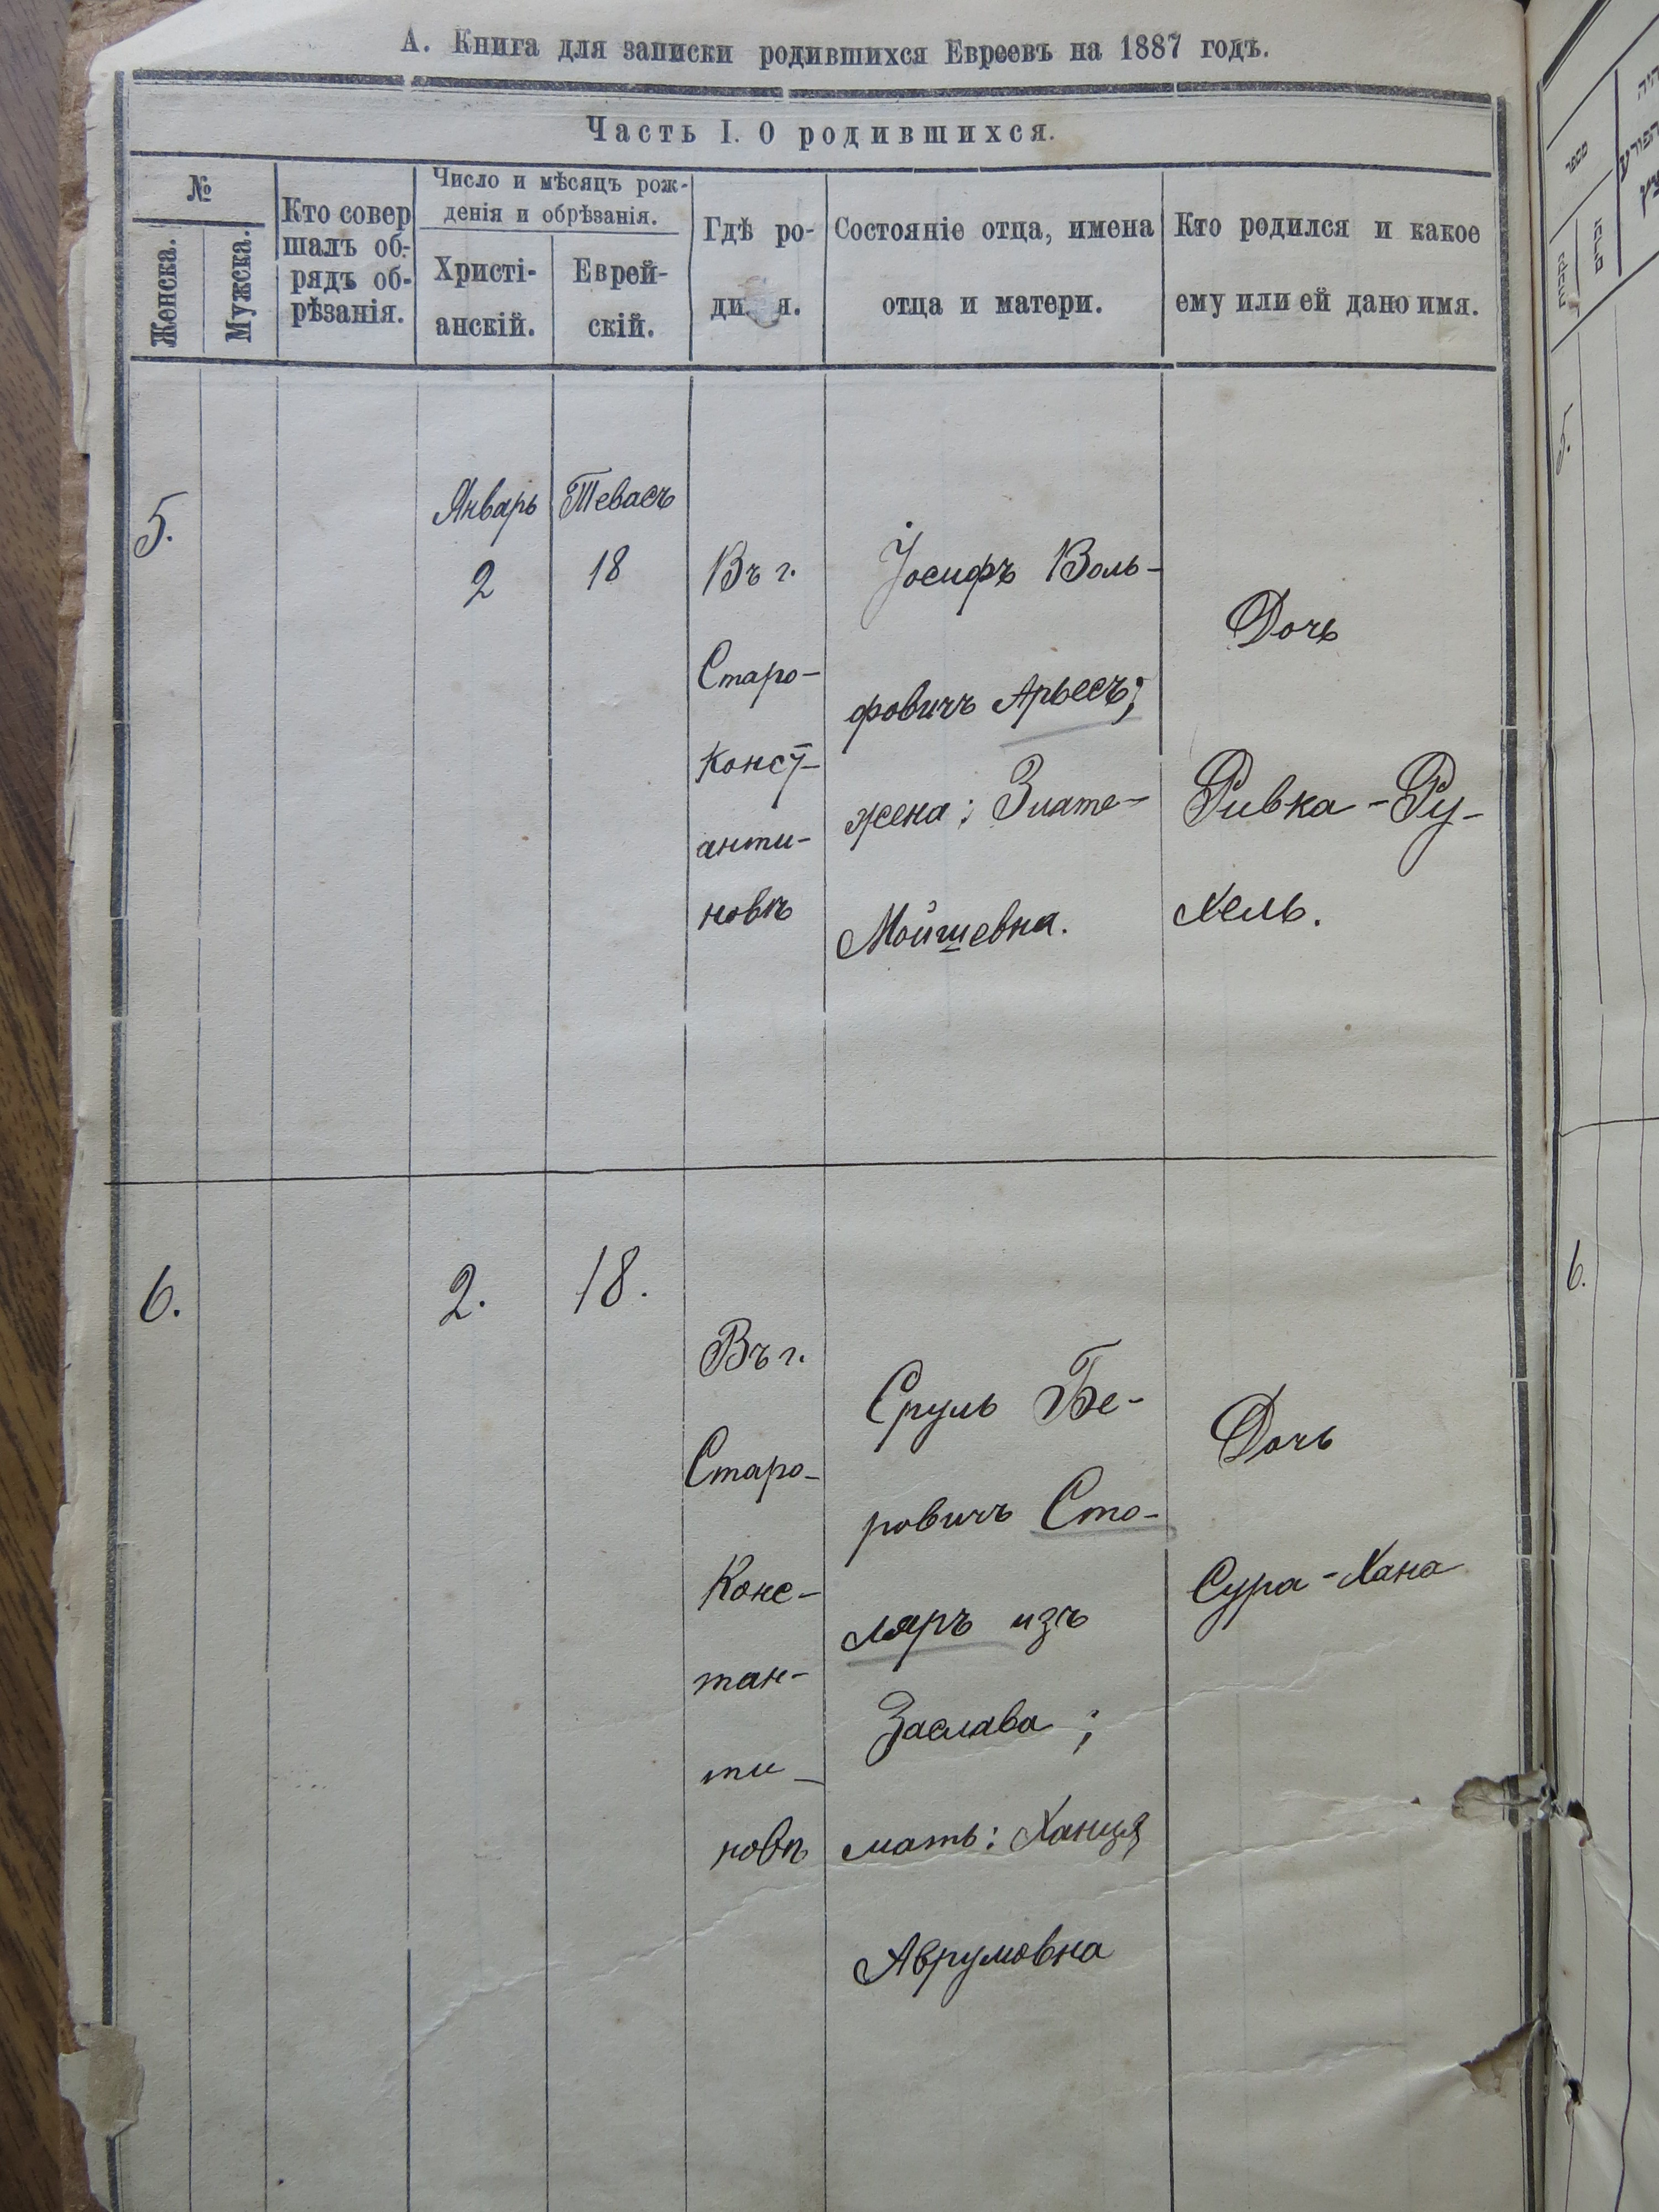 А. Книга для записки родившихся Евреевъ на 1887 годъ.
Часть I. О родившихся.
№
Женска.
Мужска.
Кто совер
шалъ об-
рядъ об-
рѣзанія.
Число и мѣсяцъ рож-
денія и обрѣзанія.
Христі-
анскій.
Еврей-
скій.
Гдѣ ро-
ди я.
Состояніе отца, имена
отца и матери.
Кто родился и какое
ему или ей дано имя.
5.
Январь
2
Тевасъ
18
Въ г.
Старо-
конст-
анти-
новѣ
Іосифъ Воль-
фовичъ Арьесъ;
жена: Злате-
Мойшевна.
Дочь
Ривка-Ру-
хель.
6.
2.
18.
Въ г.
Старо-
Конс-
тан-
ти-
новѣ
Сруль Бе-
ровичъ Сто-
ляръ изъ
Заслава;
мать: Ханця
Аврумовна
Дочь
Сура-Хана
5.
6.